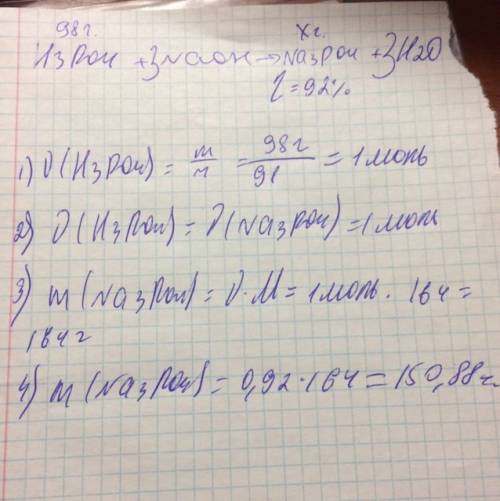 98г. Xг.
H3PO4 + 3NaOH → Na3PO4 + 3H2O
η = 92%
1) ν(H3PO4) = m/м = 98г/98 = 1 моль
2) ν(H3PO4) = ν(Na3PO4) = 1 моль
3) m(Na3PO4) = ν·M = 1 моль · 164 =
164 г
4) m(Na3PO4) = 0,92 · 164 = 150,88 г.